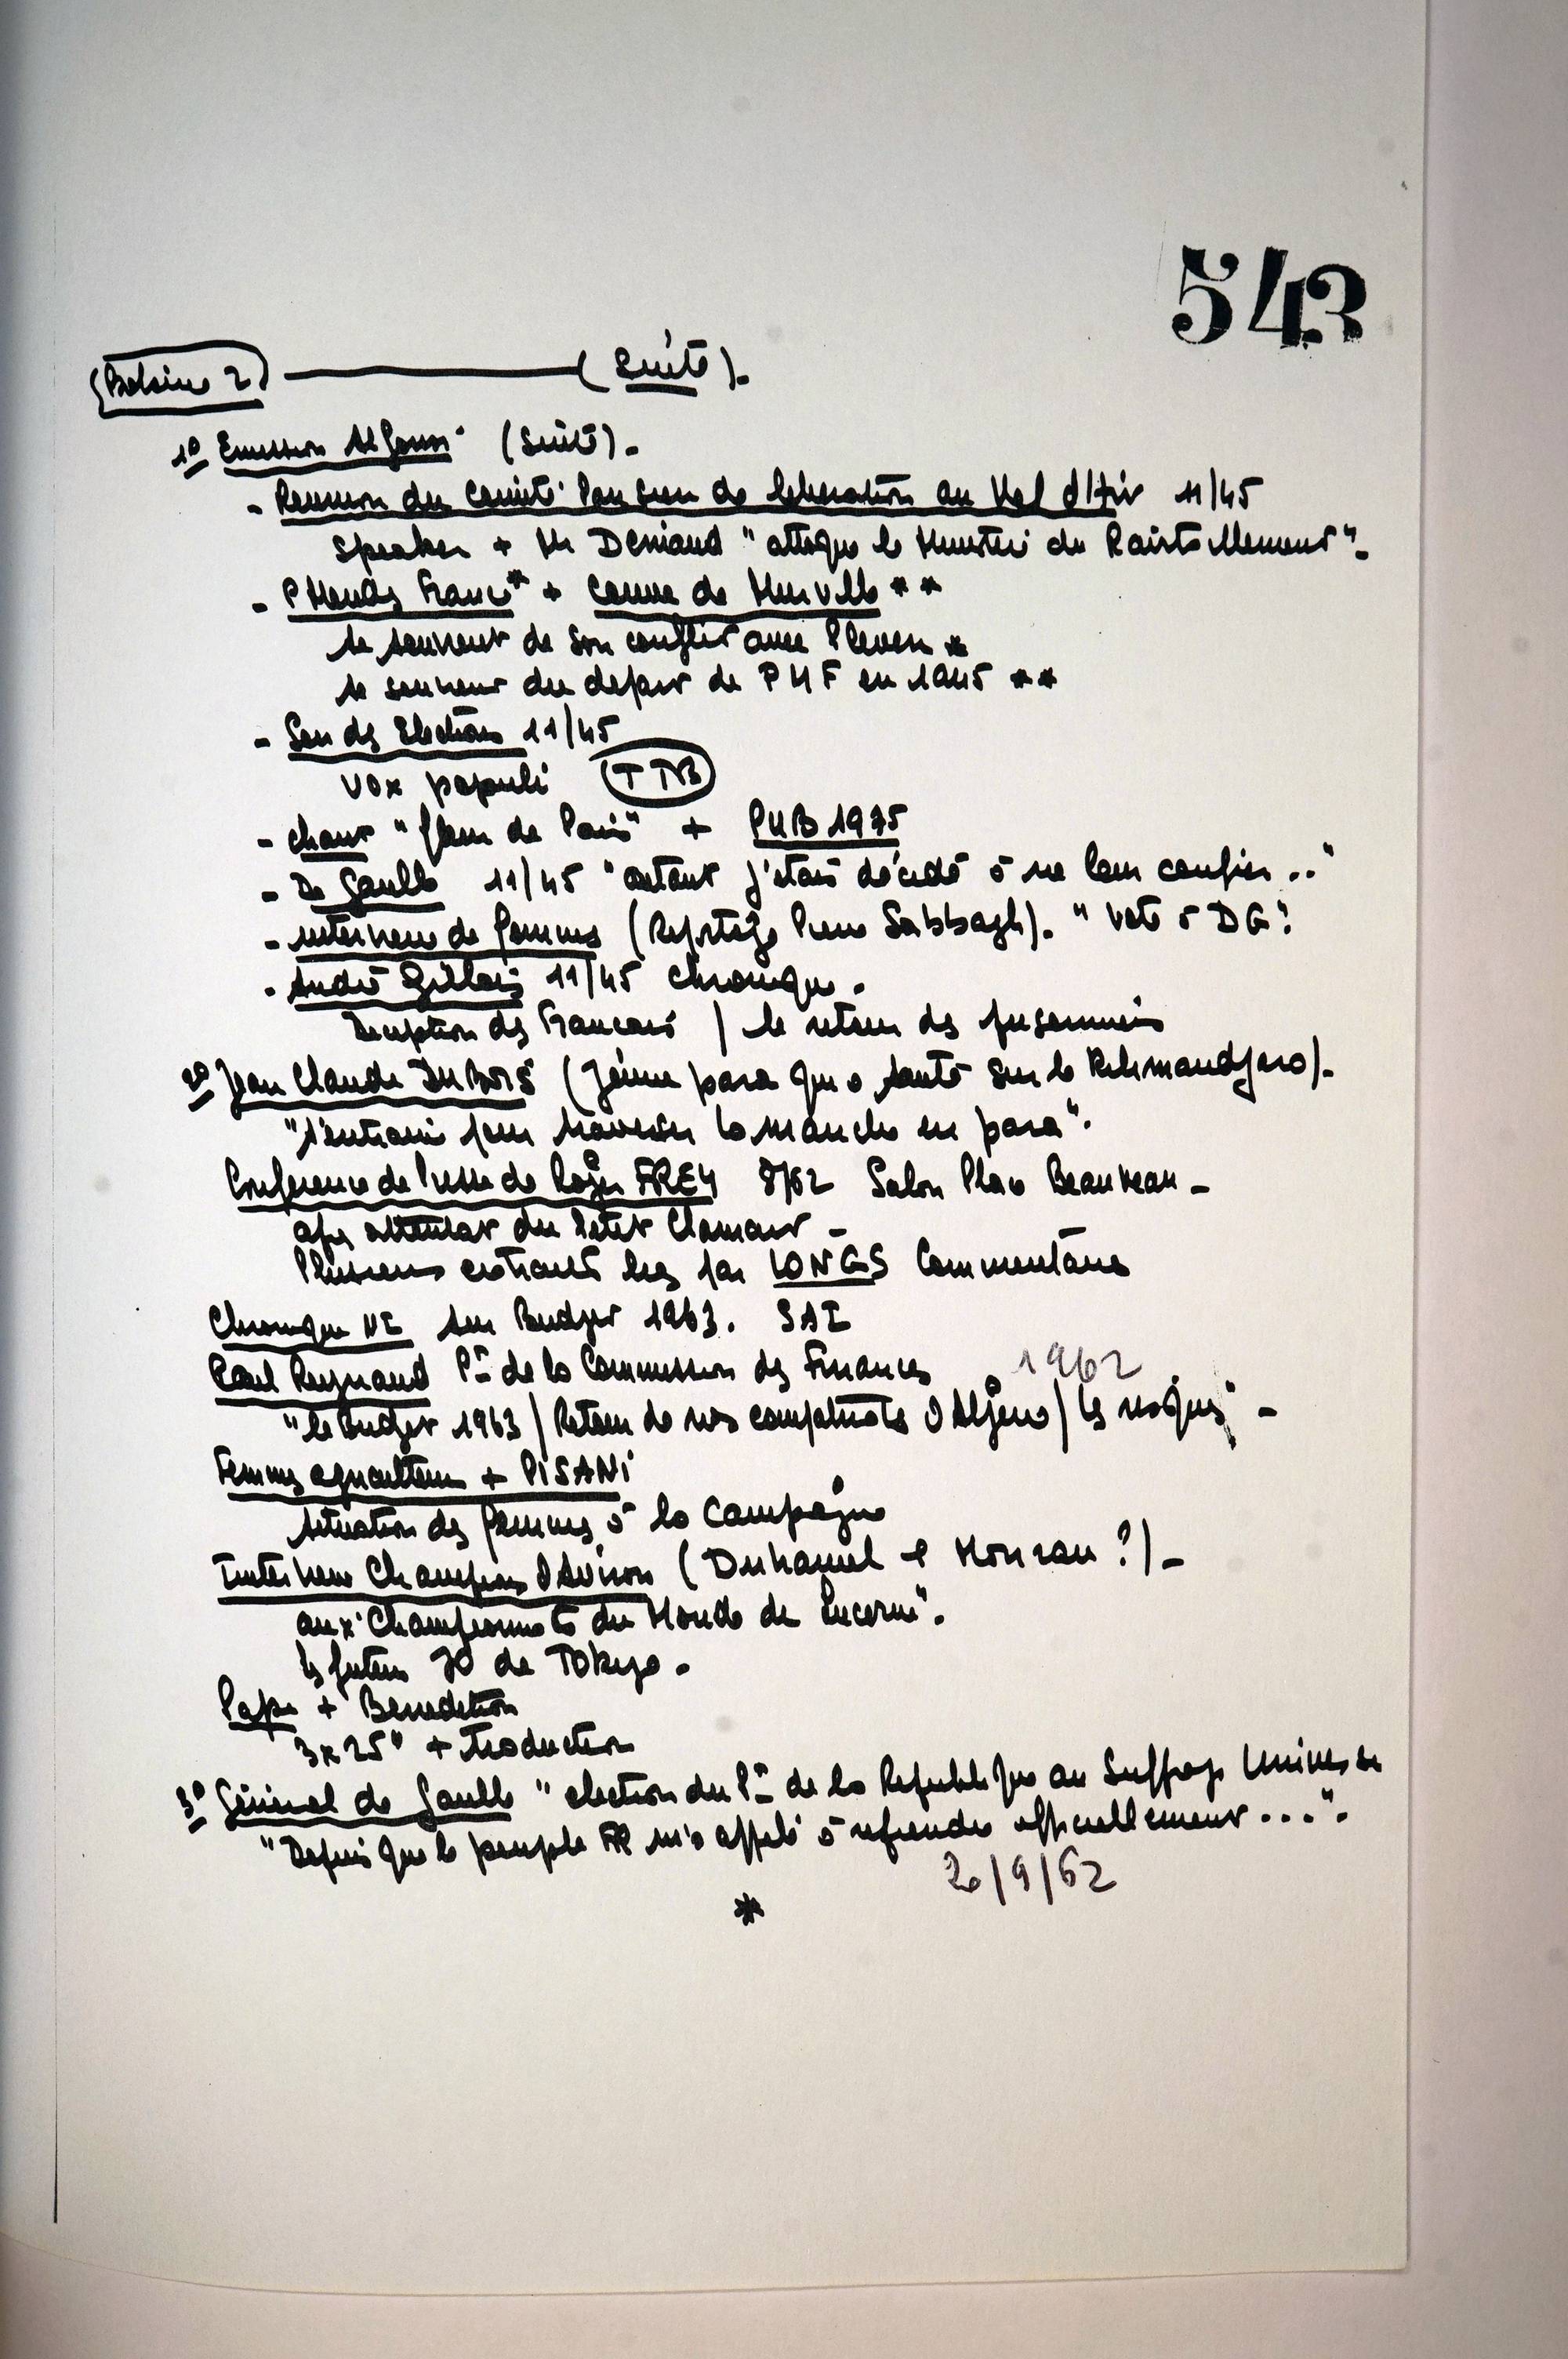 543
Bobine 2 ( Suite ).
1º Emission Alfonsi (Suite).
- Reunion du Comité Parisien de liberation au Vel d'Hiv 11/45
Speaker + Mr Deniaud "attaque le Ministère du Ravitaillement".
- P Mendes France* + Couve de Murville * *
se souvient de son conflit avec Pleven *
se souvient du depart de PMF en 1945 * *
- Son des Elections 11/45
vox populi (TTB)
- Chant "fleur de Paris" + PUB 1975
- De Gaulle 11/45 "autant j'étais décidé à ne leur confier .."
- interview de femmes (Reportage Pierre Sabbagh). "Vote à DG"
- André Gillois 11/45 chronique.
Deception des Francais / le retour des prisonniers
2º Jean Claude DUBOIS (Jeune para qui a sauté sur le Kilimandjaro).
"s'entraine pour traverser la manche en para".
Conference de Presse de Roger FREY 8/62 Salon Place Beauveau -
apres attentat du Petit Clamart -
Plusieurs extraits lies par LONGS Commentaires
Chronique sur Budget 1963. SAI
Paul Reynaud Pt de la Commission des Finances 1962
"le Budget 1963 / Retour de nos compatriotes d'Algerie / les risques" -
Femmes agriculteurs + PISANI
situation des femmes à la Campagne
Interview Champions d'Aviron (Duhamel et Monnereau ?) -
aux "Championnats du Monde de Lucerne".
les futurs JO de Tokyo.
Pape + Benediction
3x25" + traduction
3º Géneral de Gaulle "election du Pt de la Republique au Suffrage Universel
"Depuis que le peuple FR m'a appelé à reprendre officiellement ...".
20/9/62
*